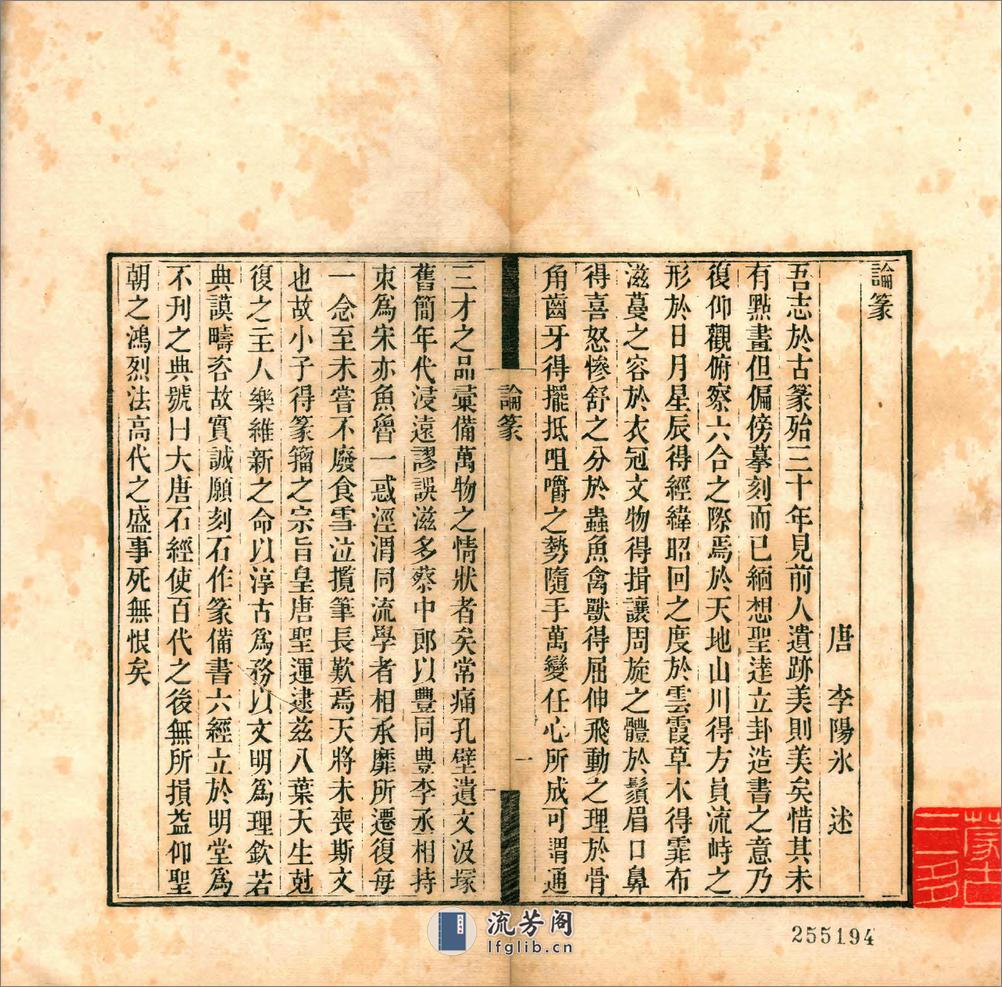 論篆
唐 李陽冰 述
吾志於古篆殆三十年見前人遺跡美則美矣惜其未
有點畫但偏傍摹刻而已緬想聖達立卦造書之意乃
復仰觀俯察六合之際焉於天地山川得方員流峙之
形於日月星辰得經緯昭回之度於雲霞草木得霏布
滋蔓之容於衣冠文物得揖讓周旋之體於鬚眉口鼻
得喜怒慘舒之分於蟲魚禽獸得屈伸飛動之理於骨
角齒牙得擺抵咀嚼之勢隨手萬變任心所成可謂通
論篆
一
三才之品彙備萬物之情狀者矣常痛孔壁遺文汲塚
舊簡年代浸遠謬誤滋多蔡中郎以豐同豊李丞相持
束為宋亦魚魯一惑涇渭同流學者相承靡所遷復每
一念至未嘗不廢食雪泣攬筆長歎焉天將未喪斯文
也故小子得篆籀之宗旨皇唐聖運逮茲八葉天生尅
復之主人樂維新之命以淳古為務以文明為理欽若
典謨疇咨故實誠願刻石作篆備書六經立於明堂為
不刊之典號曰大唐石經使百代之後無所損益仰聖
朝之鴻烈法高代之盛事死無恨矣
三多
流芳阁
lfglib.cn
255194